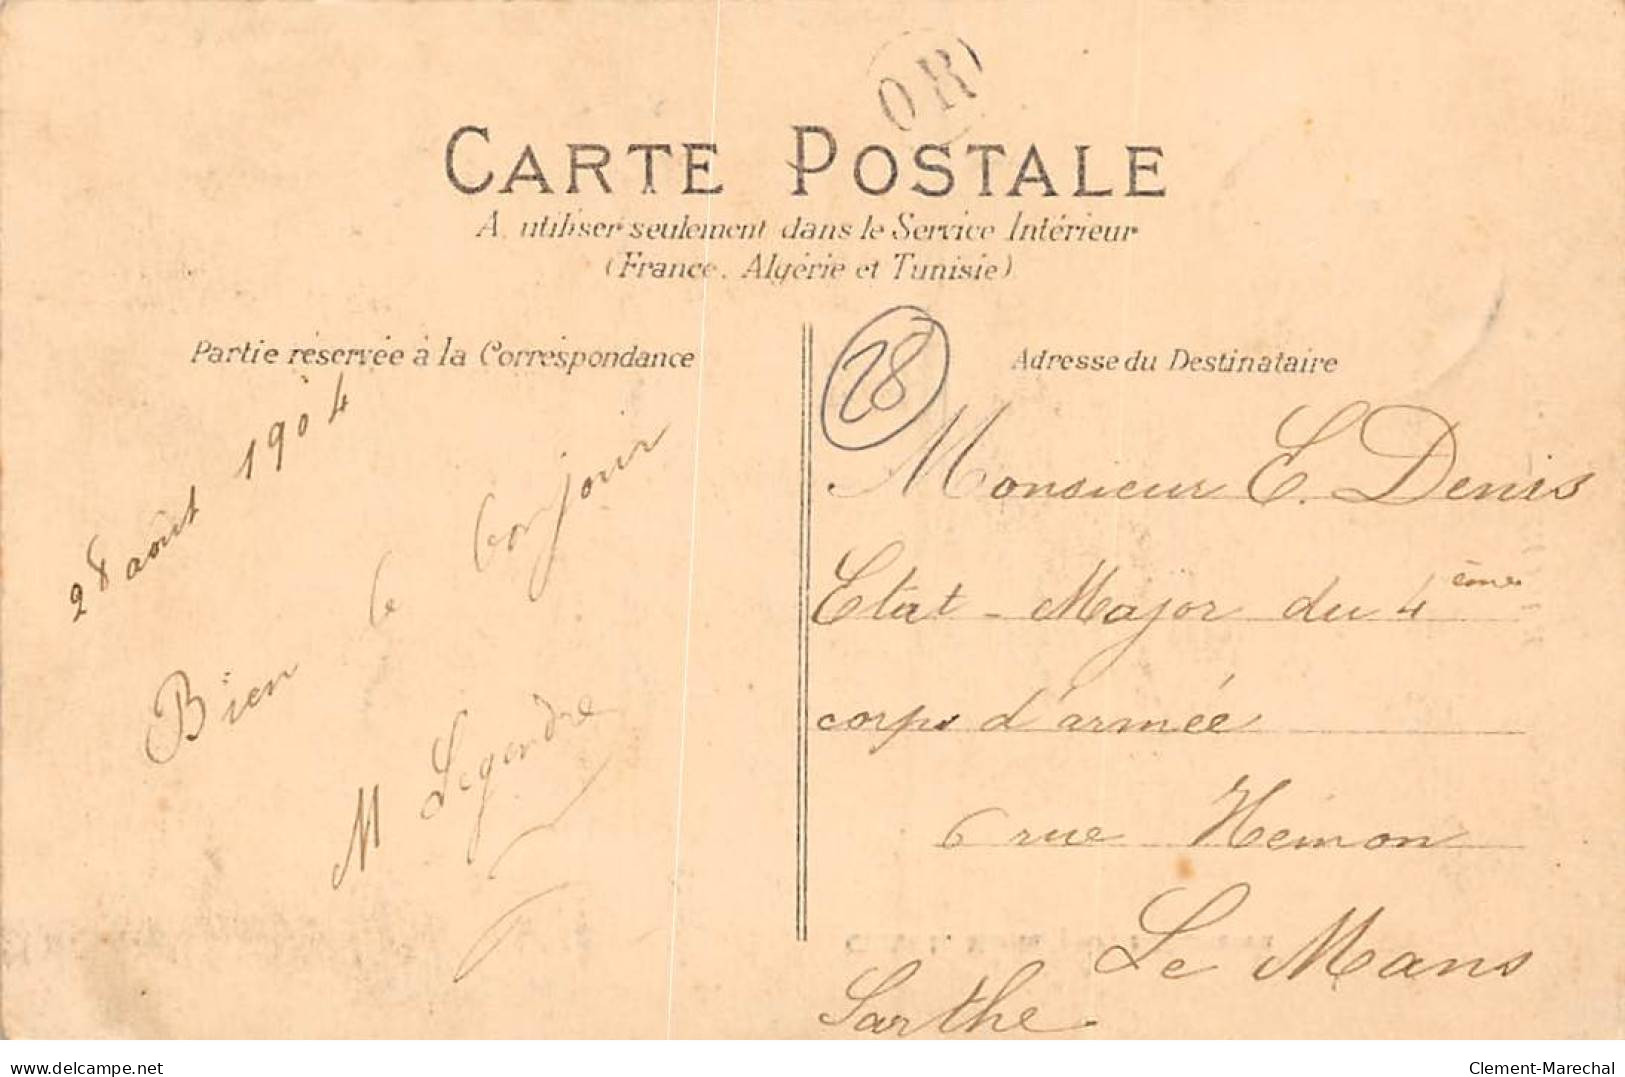 OR
CARTE POSTALE
A utiliser seulement dans le Service Intérieur
(France, Algérie et Tunisie)
Partie réservée à la Correspondance
28 août 1904
Bien le bonjour
M Legendre
Adresse du Destinataire
28
Monsieur E. Denis
Etat - Major du 4ème
corps d'armée
6 rue Hémon
Le Mans
Sarthe.
delcampe.net
Clement-Marechal